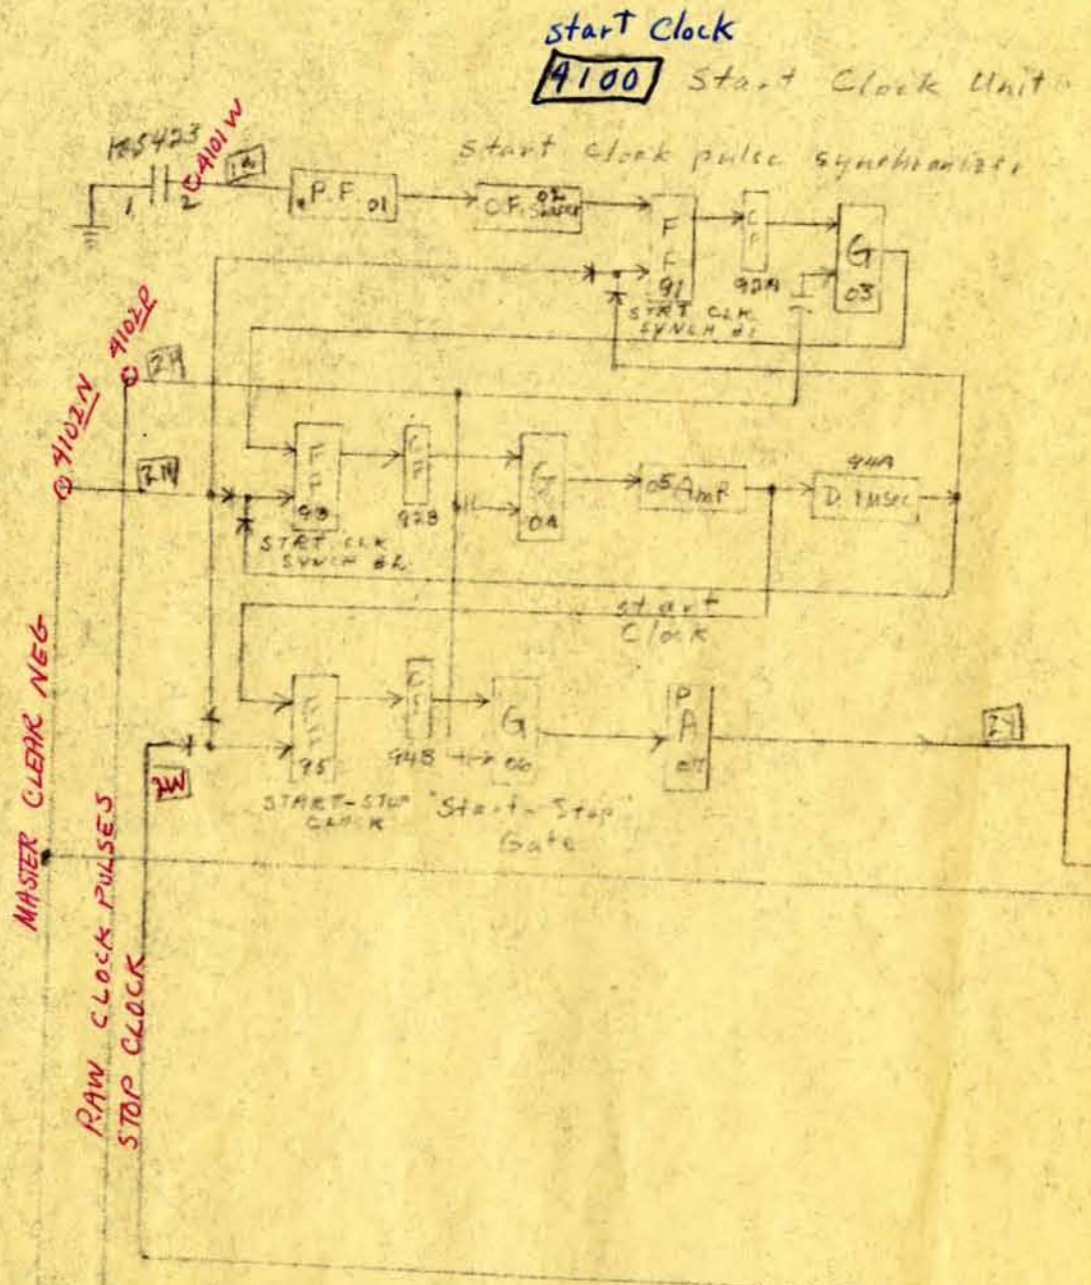 start Clock
4100 Start Clock Unit
start clock pulse synchronizer
4101W
1 2
P.F. 01
C.F. 02
F F 91
C F 92A
G 03
START CLK
SYNCH #1
4102P
2P
4102N
2N
F F 93
C F 92B
G 04
05 Amp
94A
D. 1µsec
STRT CLK
SYNCH #2
start
Clock
F F 95
C F 94B
G 06
P A 07
2Y
START-STOP
CLOCK
"Start-Stop"
Gate
MASTER CLEAR NEG
RAW CLOCK PULSES
STOP CLOCK